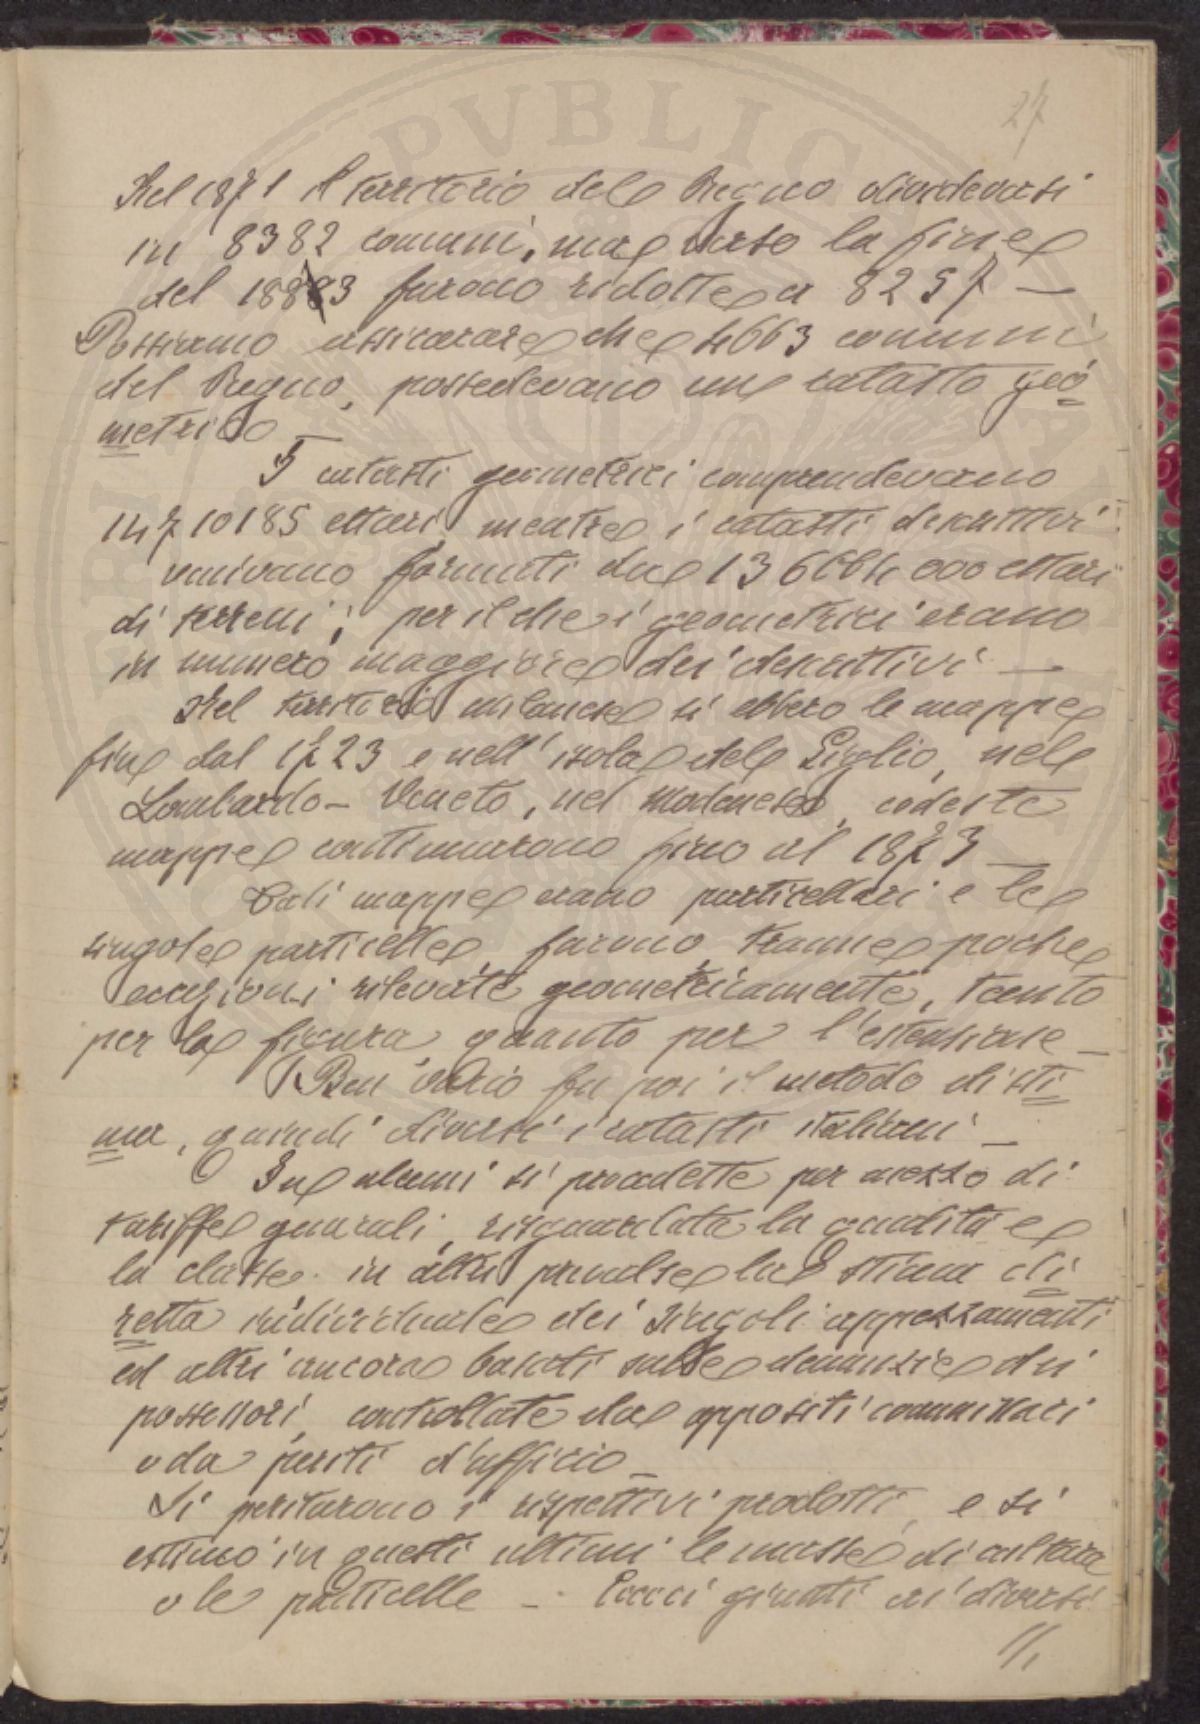 27
Nel 1871 il territorio del Regno dividevasi
in 8382 comuni, ma verso la fine
del 1883 furono ridotte a 8257 —
Possiamo assicurare che 4663 comuni
del Regno, possedevano un catasto geo
metrico —
I catasti geometrici comprendevano
14710185 ettari, mentre i catasti descrittivi
venivano formati da 13 6664 000 ettari
di terreni; per il che i geometrici erano
in numero maggiore dei descrittivi —
Nel territorio milanese si ebbero le mappe
fin dal 1723 e nell'isola del Giglio, nel
Lombardo-Veneto, nel Modenese, codeste
mappe continuarono fino al 1873 —
Tali mappe erano particellari e le
singole particelle, furono, tranne poche
eccezioni rilevate geometricamente, tanto
per la figura, quanto per l'estensione —
Ben vario fu poi il metodo di sti
ma, quindi diversi i catasti italiani —
In alcuni si procedette per mezzo di
tariffe generali, risguardata la qualità e
la classe. in altri prevalse la stima di
retta individuale dei singoli appezzamenti
ed altri ancora basati sulle denunzie dei
possessori, controllate da appositi commissari
o da periti d'ufficio —
Si peritarono i rispettivi prodotti, e si
estimò in questi ultimi le masse di coltura
o le particelle — Eccoci giunti ai diversi
//.